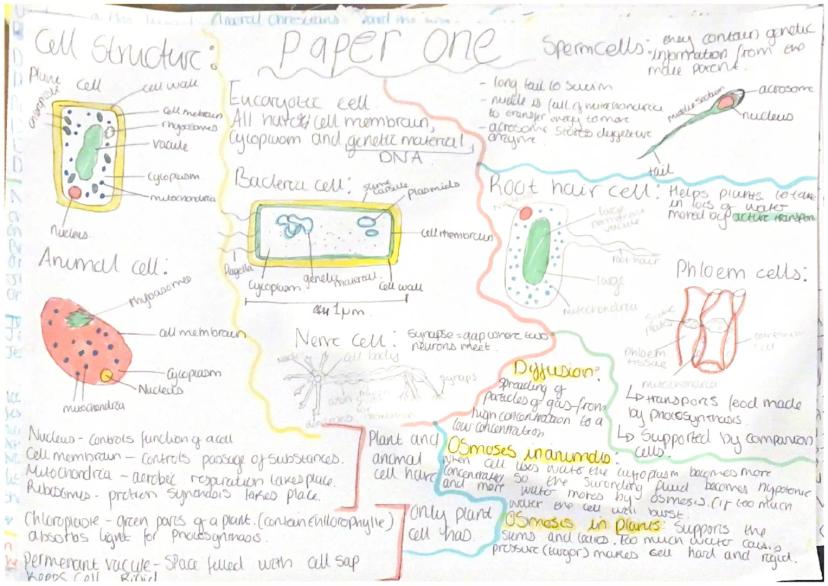 Cell Structure:
Plant cell
cell wall
cell membrain
rhybosomes
vacule
cytoplasm
mitochondria
nucleus
Animal cell:
rhybosomes
cell membrain
cytoplasm
Nucleus
mitochondria
Nucleus - controls function of a cell
Cell membrain - controls passage of substances.
Mitochondria - aerobic respiration takes place.
Ribosomes - protien synthesis takes place.
Plant and
animal
cell have
Chloroplasts - green parts of a plant. (contain chlorophylle)
absorbs light for photosynthasis.
Permenant vacule - Space filled with cell sap
Keeps Cell Rigid
only plant
cell has
Paper one
Eucaryotic cell.
All have cell membrain,
cytoplasm and genetic material
DNA.
Bacteria cell:
slime capsule
plasmids
cell membrain
flagella
cytoplasm
genetic material
cell wall
1μm
Nerve cell:
synapse = gap where two
neurons meet.
cell body
Diffusion:
spreading of
particles of gas from
high concentration to a
low concentration
Osmoses in animals:
when cell uses water the cytoplasm becomes more
concentrated so the surronding fluid becomes hypotonic
and more water moves by osmosis. (if too much
water the cell will burst.
Osmoses in plants: Supports the
stems and leaves. Too much water causes
pressure (turgor) makes cell hard and rigid.
Sperm cells:
they contain genetic
information from the
male parent.
- long tail to swim
- middle is full of mitochondria
to transfer energy to move
- acrosome secretes digestive
enzyme.
middle section
acrosome
nucleus
tail
Root hair cell:
Helps plants to take
in lots of water
moved by active transport
root hair
large
mitochondria
Phloem cells:
phloem
tissue
mitochondria
transports food made
by photosynthasis
Supported by companion
cells.